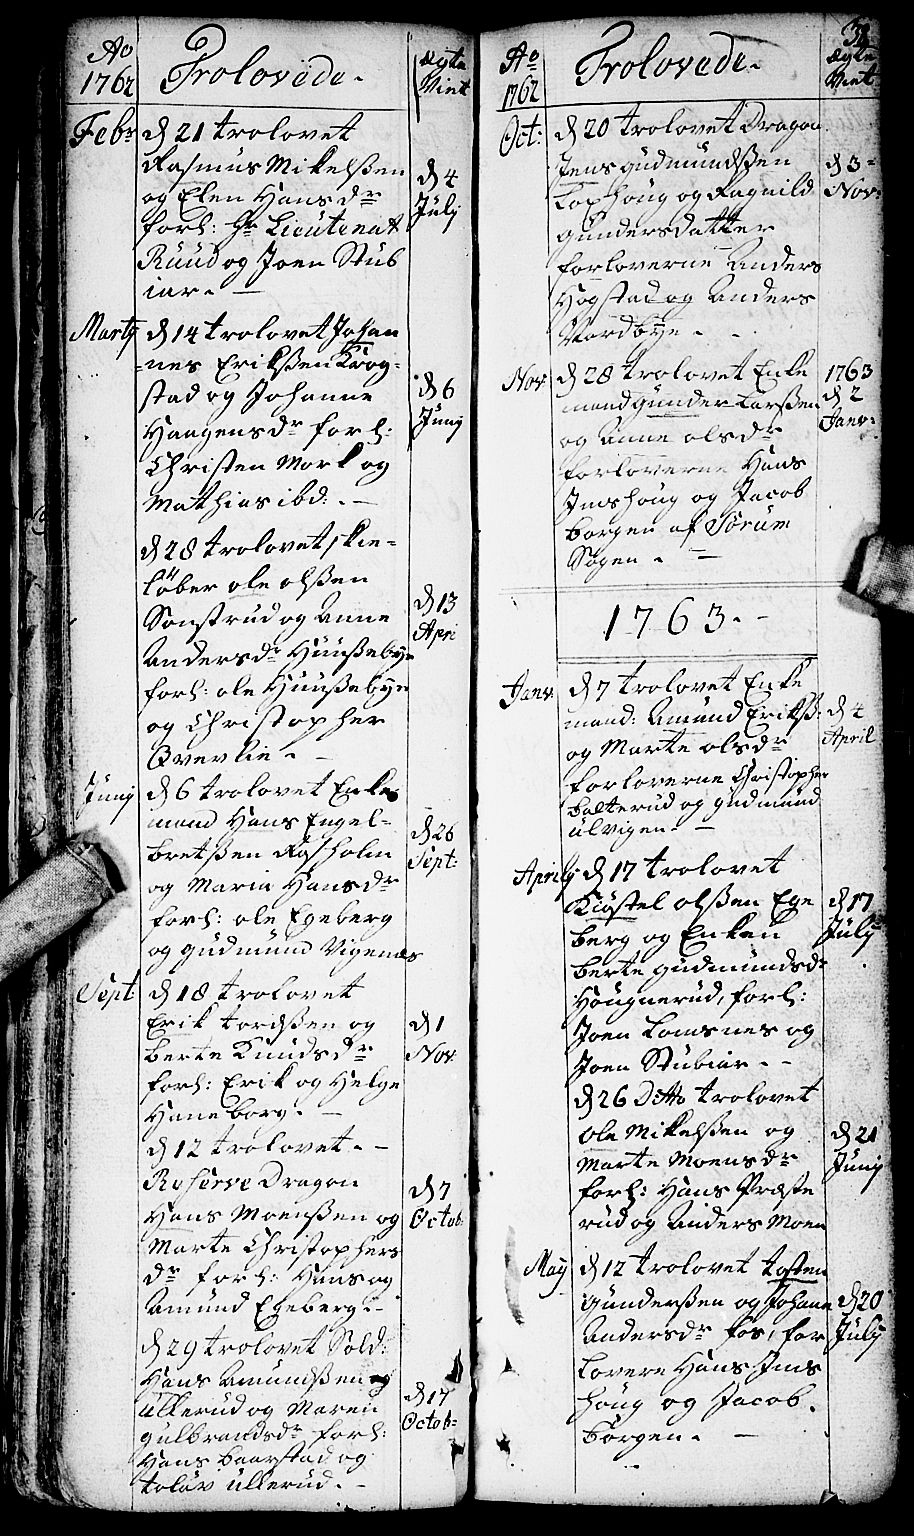 Ao
1762
Trolovede.
ægte
Viet
Febr
d 21 trolovet
Rasmus Mikelßen
og Elen Hansdr
forl: Hr Lieutenat
Ruud og Joen Stub
iar. —
d 4
Julj
Martj
d 14 trolovet Johan
=nes Erikßen Krog=
stad og Johanne
Haagensdr forl:
Christen Mork og
Matthias ibd. —
d 6
Junj
d 28 trolovet skie=
löber ole olßen
Sonstrud og Anne
Andersdr Huußebye
forl: ole Huußebye
og Christopher
Overlie. —
d 13
Apri
Junj
d 6 trolovet Enke
mand Hans Engel=
bretßen Raßholm
og Maria Hansdr
forl: ole Egeberg
og gudmund Vigenes
d 26
Sept:
Sept
d 18 trolovet
Erik tordßen og
berte Knudsdr
forl: Erik og Helge
Haneborg. —
d 1
Nov:
d 12 trolovet. —
Reserve Dragon
Hans Moenßen og
Marte Christophers
dr forl: Hans og
Amund Egeberg. —
d 7
Octob:
d 29 trolovet Sold:
Hans Amundßen
Ullerud og Maren
gulbrandsdr forl:
Hans baarstad og
tolav Ullerud. —
d 17
Octob=
Ao
1762
Trolovede.
ægte
Viet
Oct:
d 20 trolovet Dragon
Jens gudmundßen
Tophoug og Ragnild
gundersdatter
forloverne Anders
Hogstad og Anders
Nordbye. —
d 3=
Nov:
Nov:
d 28 trolovet Enke
mand gunder Larßen
og Anne olsdr
forloverne Hans
Imshoug og Jacob
borgen af Sörum
Sogen. —
1763
d 2
Janv:
1763. —
Janv:
d 7 trolovet Enke
mand: Amund Erikß:
og Marte olsdr
forloverne Christopher
balterud og gudmund
ulvigen. —
d 4
April
Aprilj
d 17 trolovet
Kiöstel olßen Ege
berg og Enken
berte gudmundsdr
Hougnerud, forl:
Joen Lomsnes og
Joen Stubiar. —
d 17
Julj
d 26 Dito trolovet
ole Mikelßen og
Marte Moensdr
forl: Hans Præste
rud og Anders Moen
d 21
Junj
Maij
d 12 trolovet tosten
gunderßen og Johane
Andersdr fos, for
lovere Hans Ims
houg og Jacob.
borgen. —
d 20
Julj